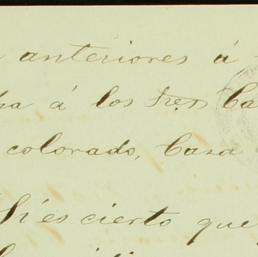 anteriores á
á los tres Ca
colorado, Casa
Si es cierto que